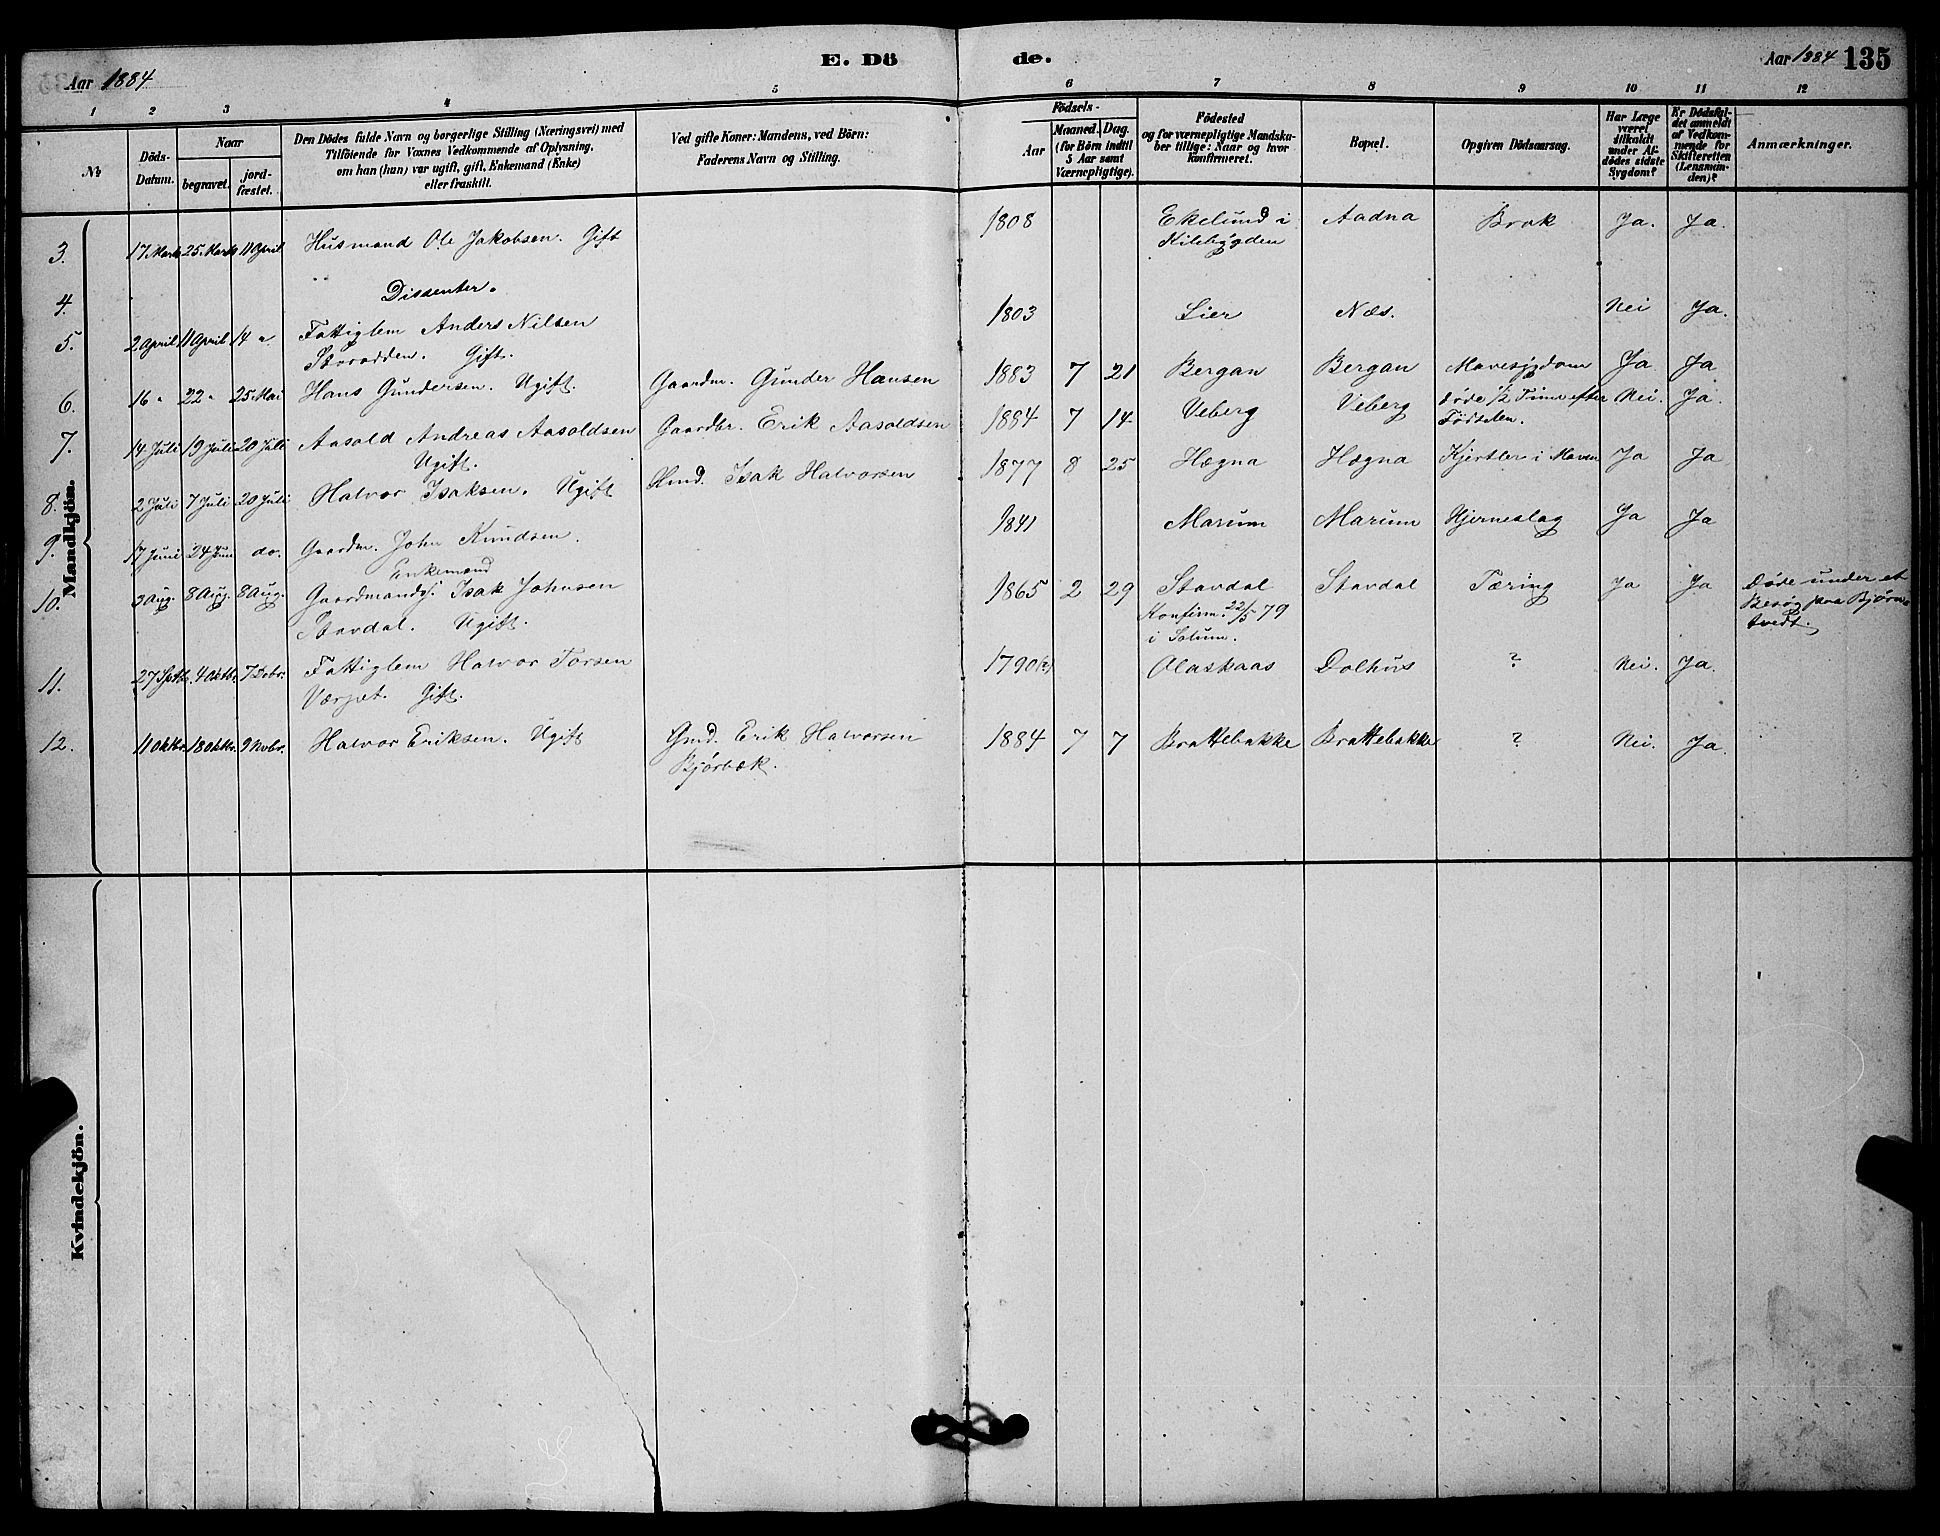 Aar 1884
E. Dö de.
Aar 1884 135
1 2 3 4 5 6 7 8 9 10 11 12
№
Döds-Datum.
Naar
begravet.
jord-fæstet.
Den Dödes fulde Navn og borgerlige Stilling (Næringsvei) med
Tilföiende for Voxnes Vedkommende af Oplysning,
om han (hun) var ugift, gift, Enkemand (Enke)
eller fraskilt.
Ved gifte Koner: Mandens, ved Börn:
Faderens Navn og Stilling.
Födsels-
Aar
Maaned. Dag.
(for Börn indtil
5 Aar samt
Værnepligtige).
Födested
og for værnepligtige Mandska-
ber tillige: Naar og hvor
konfirmeret.
Bopæl.
Opgiven Dödsaarsag.
Har Læge
været
tilkaldt
under Af-
dödes sidste
Sygdom?
Er Dödsfal-
det anmeldt
af Vedkom-
mende for
Skifteretten
(Lensman-
den)?
Anmærkninger.
Mandkjön.
3. 17 Marts 25 Marts 11 April Husmand Ole Jakobsen. Gift 1808 Ekelund i Aadna Brok Ja. Ja.
Kilebygden
4. Dissenter.
5. 2 April 11 April 14 " Fattiglem Anders Nilsen 1803 Lier Næs. Nei Ja.
Gift.
6. 16 " 22 " 25 Mai Hans Gundersen. Ugift. Gaardm. Gunder Hansen 1883 7 21 Bergan Bergan Mavesygdom Ja Ja
7. 14 Juli 19 Juli 20 Juli Aasold Andreas Aasoldsen Gaardbr. Erik Aasoldsen 1884 7 14 Veberg Veberg døde 1/2 Time efter Nei. Ja.
Ugift. Fødselen.
8. 2 Juli 7 Juli 20 Juli Halvor Isaksen. Ugift Hmd. Isak Halvorsen 1877 8 25 Hægna Hægna Kjertler i Maven Ja Ja
9. 17 Juni 24 Juni do. Gaardm. John Knudsen. 1841 Marum Marum Hjerneslag Ja Ja
Enkemand
10. 3 Aug. 8 Aug. 8 Aug. Gaardmands. Isak Johnsen 1865 2 29 Stavdal Stavdal Tæring Ja Ja Døde under et
Stavdal. Ugift. Konfirm. 22/5 79 Besøg paa Bjørn-
i Solum. tvedt.
11. 27 Septb. 4 Oktbr. 7 Debr. Fattiglem Halvor Torsen 1790(?) Olaskaas Dolhus ? Nei. Ja.
Værpet. Gift.
12. 11 Oktbr. 18 Oktbr. 9 Nvbr. Halvor Eriksen. Ugift Gmd. Erik Halvorsen 1884 7 7 Brattebakke Brattebakke ? Nei. Ja.
Bjørbæk.
Kvindekjön.